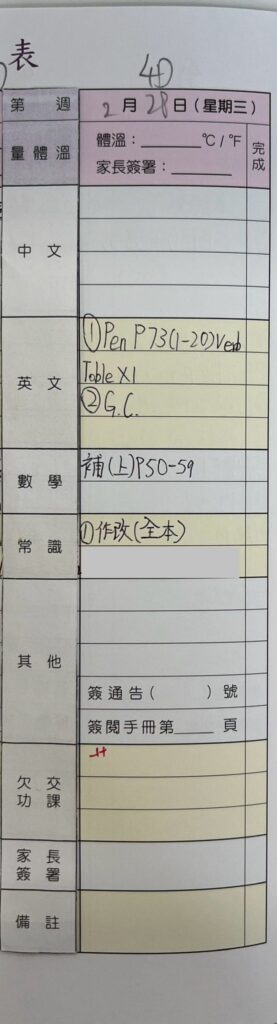 表
40
第 週
2月28日(星期三)
量體溫
體溫：______ °C / °F
家長簽署：______
完成
中文
英文
①Pen P73(1-20)Verb
Table X1
②G.C.
數學
補(上)P50-59
常識
①作改(全本)
其他
簽通告( )號
簽閱手冊第____頁
欠交功課
家長簽署
備註